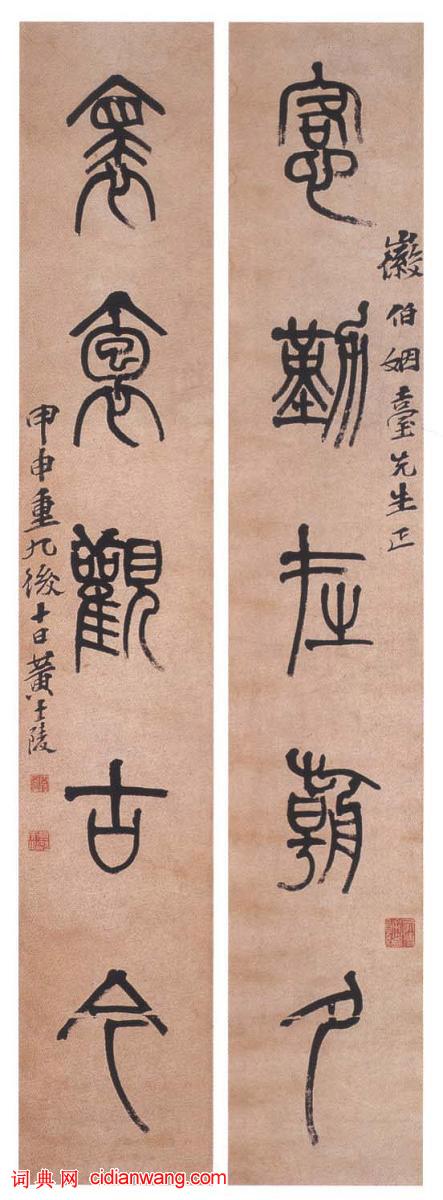 愙勤在朝夕
徽伯姻臺先生正
褱袌觀古今
甲申重九後十日黃士陵
词典网 cidianwang.com